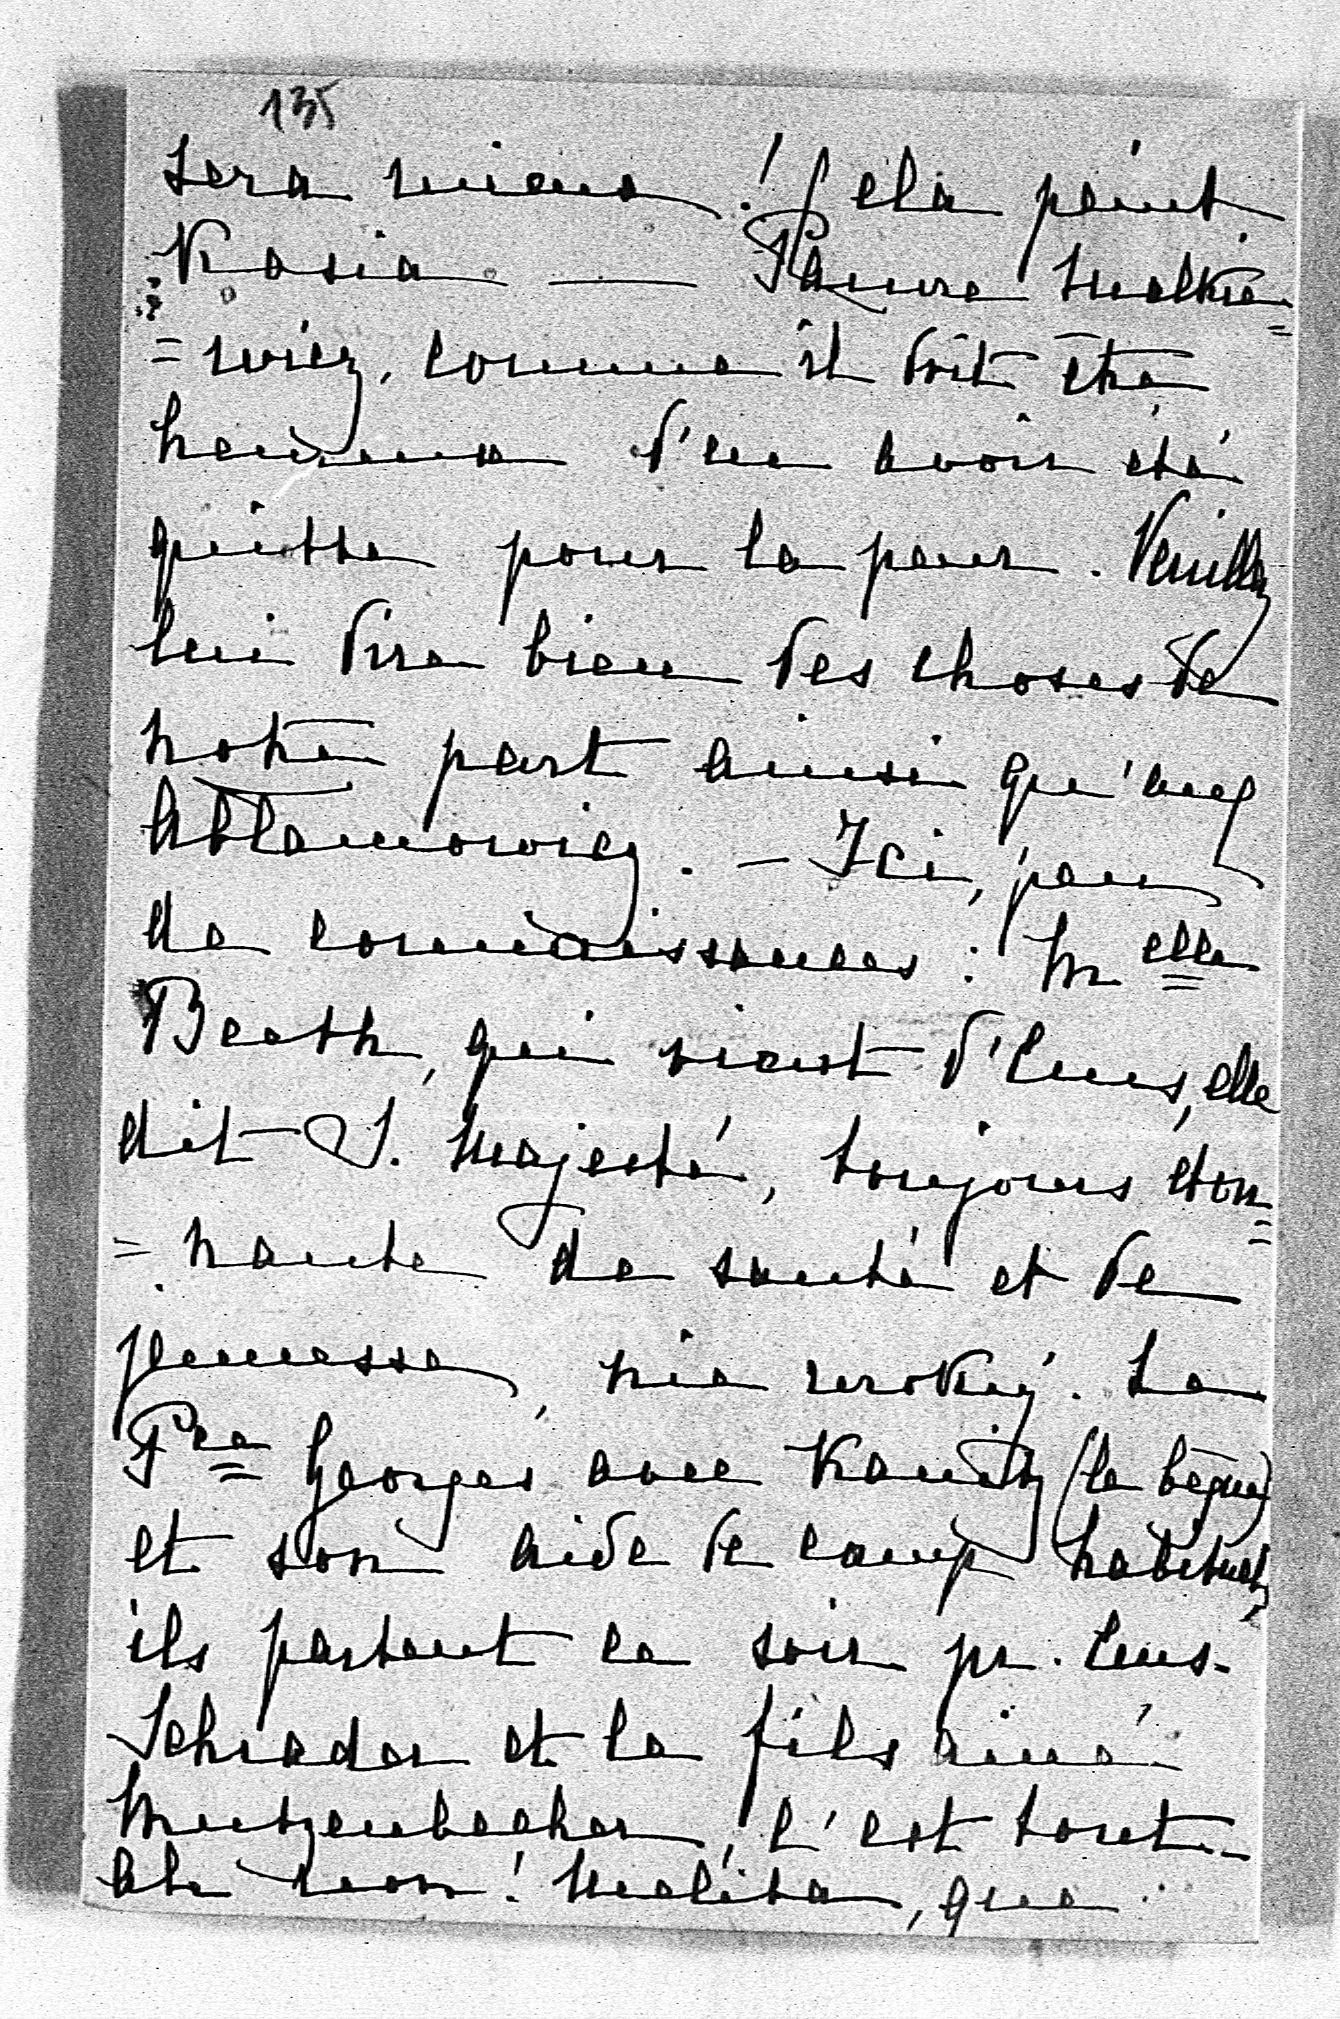 135
sera mieux ! Cela peint
Kasia — Pauvre Melkie=
=wicz, comme il doit être
heureux d'en avoir été
quitte pour la peur. Veuillez
lui dire bien des choses de
notre part ainsi qu'aux
Ablamowicz. — Ici, peu
de connaissances : Melle
Beeth, qui vient d'Ems, elle
dit S. Majesté, toujours éton=
=nante de santé et de
jeunesse, nie wrokiy. Le
Pce Georges avec Kanitz (le bègue)
et son aide de camp habituel,
ils partent ce soir pr. Ems.
Schrader et le fils aîné
Mutzenbecher, c'est tout.
Ah non ! Melita, que